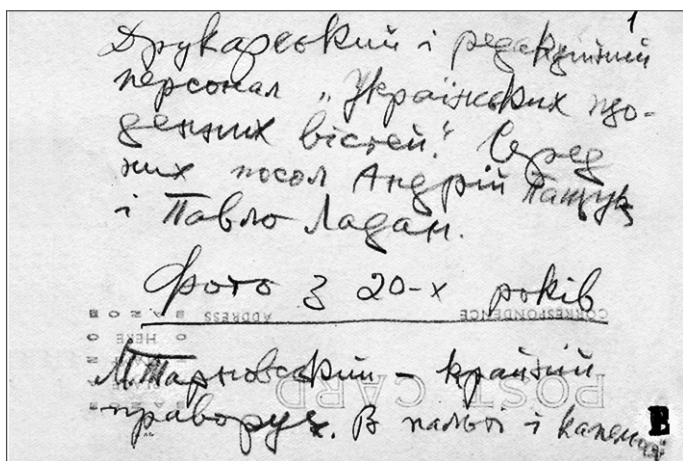 1
Друкарський і редакційний
персонал „Українських що-
денних вістей". Серед
них посол Андрій Пащук
і Павло Ладан.
Фото з 20-х років
CORRESPONDENCE ADDRESS
HERE
POST CARD
М. Тарновський – крайній
праворуч. В пальті і капелюсі
B